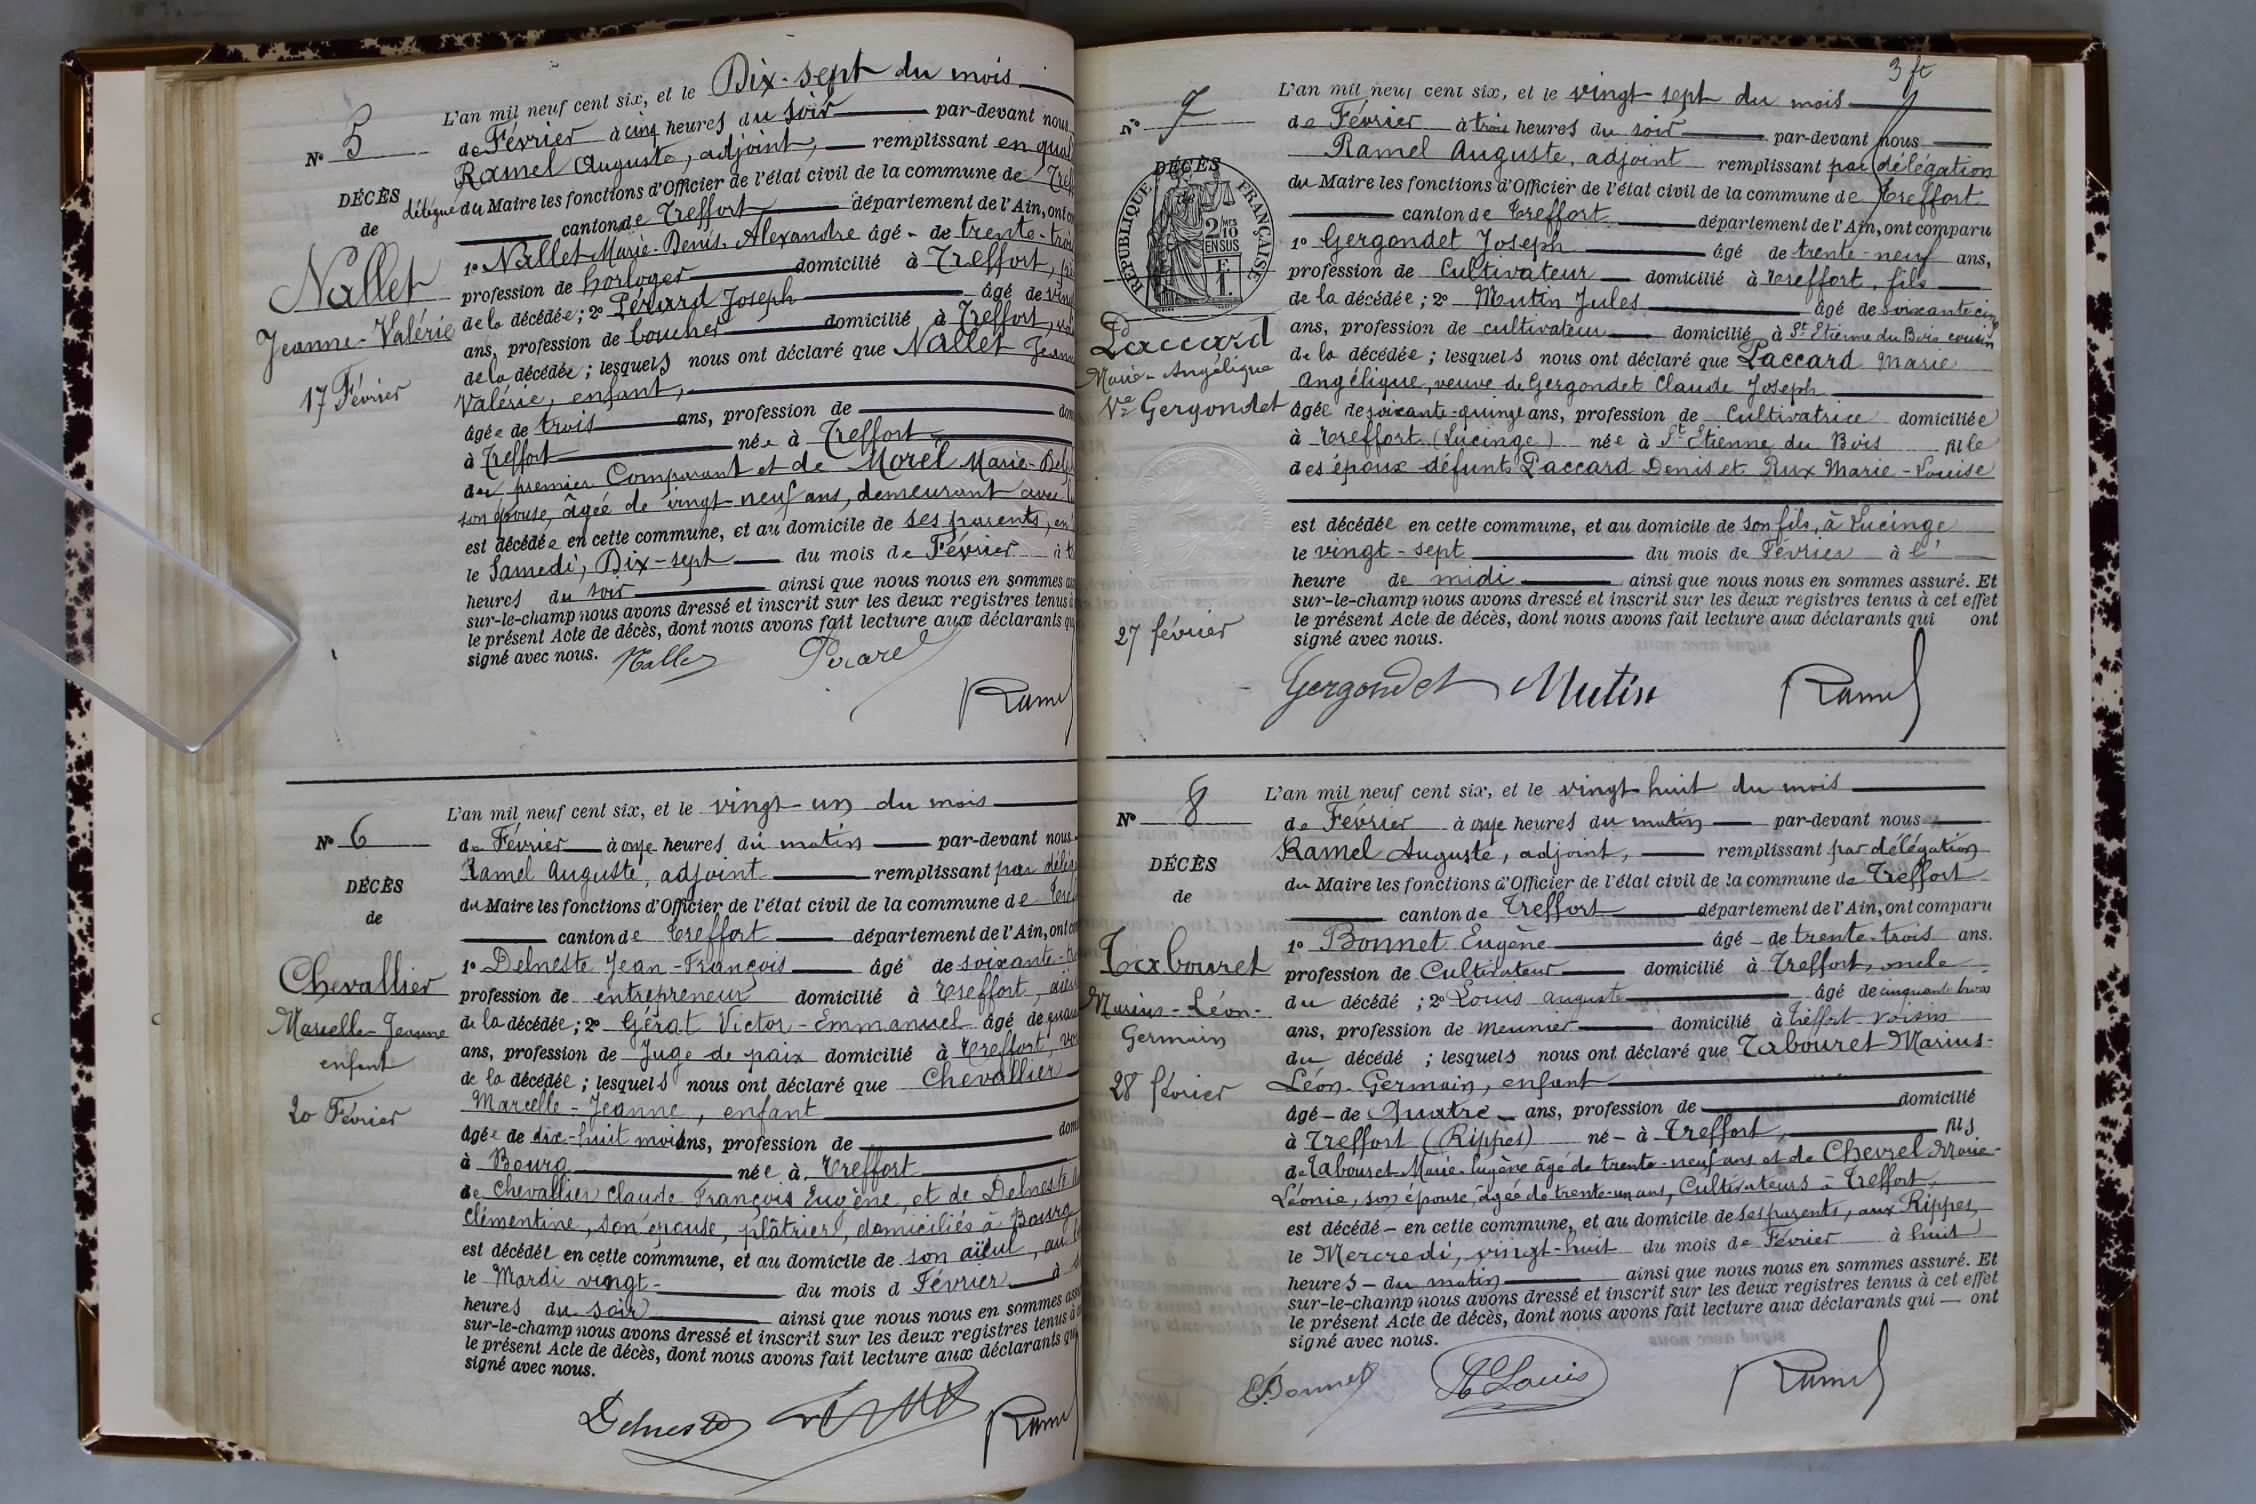 N° 5
DÉCÈS
de
Nallet
Jeanne-Valérie
17 Février
L'an mil neuf cent six, et le Dix-sept du mois
de Février à cinq heures du soir par-devant nous
Ramel Auguste, adjoint, remplissant en qual
délégué du Maire les fonctions d'Officier de l'état civil de la commune de Tref
canton de Treffort département de l'Ain, ont co
1° Nallet Marie-Denis-Alexandre âgé - de trente-trois
profession de horloger domicilié à Treffort, pè
de la décédée; 2° Pérard Joseph âgé de vingt
ans, profession de boucher domicilié à Treffort, voi
de la décédée; lesquels nous ont déclaré que Nallet Jeanne
Valérie, enfant,
âgée de trois ans, profession de dom
à Treffort née à Treffort
du premier Comparant et de Morel Marie-Delp
son épouse, âgée de vingt-neuf ans, demeurant avec lui
est décédée en cette commune, et au domicile de ses parents, en
le Samedi, Dix-sept du mois de Février à t
heures du soir ainsi que nous nous en sommes ass
sur-le-champ nous avons dressé et inscrit sur les deux registres tenus à
le présent Acte de décès, dont nous avons fait lecture aux déclarants qui
signé avec nous.
Nallet Pérard
Ramel
N° 6
DÉCÈS
de
Chevallier
Marcelle-Jeanne
enfant
20 Février
L'an mil neuf cent six, et le vingt-un du mois
de Février à onze heures du matin par-devant nous
Ramel Auguste, adjoint remplissant par délég
du Maire les fonctions d'Officier de l'état civil de la commune de Tref
canton de Treffort département de l'Ain, ont com
1° Delneste Jean-François âgé de soixante-tr
profession de entrepreneur domicilié à Treffort, aïeul
de la décédée; 2° Gérat Victor-Emmanuel âgé de quara
ans, profession de Juge de paix domicilié à Treffort, voi
de la décédée; lesquels nous ont déclaré que Chevallier
Marcelle-Jeanne, enfant
âgée de dix-huit mois ans, profession de domi
à Bourg née à Treffort
de Chevallier Claude François Eugène, et de Delneste
Clémentine, son épouse, plâtrier, domiciliés à Bourg
est décédée en cette commune, et au domicile de son aïeul, au
le Mardi vingt du mois d Février à
heures du soir ainsi que nous nous en sommes assu
sur-le-champ nous avons dressé et inscrit sur les deux registres tenus à c
le présent Acte de décès, dont nous avons fait lecture aux déclarants qui
signé avec nous.
Delneste
Ramel
3 ft
N° 7
DÉCÈS
de
RÉPUBLIQUE FRANÇAISE
2 MES
10
EN SUS
F
1
Paccard
Marie-Angélique
Ve Gergondet
27 février
L'an mil neuf cent six, et le vingt-sept du mois
de Février à trois heures du soir par-devant nous
Ramel Auguste, adjoint remplissant par délégation
du Maire les fonctions d'Officier de l'état civil de la commune de Treffort
canton de Treffort département de l'Ain, ont comparu
1° Gergondet Joseph âgé de trente-neuf ans,
profession de Cultivateur domicilié à Treffort, fils
de la décédée; 2° Mutin Jules âgé de soixante-cinq
ans, profession de cultivateur domicilié à St Etienne du Bois cousin
de la décédée; lesquels nous ont déclaré que Paccard Marie
Angélique, veuve de Gergondet Claude Joseph
âgée de soixante-quinze ans, profession de Cultivatrice domiciliée
à Treffort (Lucinge) née à St Etienne du Bois fille
des époux défunts Paccard Denis et Rux Marie-Louise
est décédée en cette commune, et au domicile de son fils, à Lucinge
le vingt-sept du mois de Février à l'
heure de midi ainsi que nous nous en sommes assuré. Et
sur-le-champ nous avons dressé et inscrit sur les deux registres tenus à cet effet
le présent Acte de décès, dont nous avons fait lecture aux déclarants qui ont
signé avec nous.
Gergondet Mutin Ramel
N° 8
DÉCÈS
de
Tabouret
Marius-Léon-
Germain
28 février
L'an mil neuf cent six, et le vingt-huit du mois
de Février à onze heures du matin par-devant nous
Ramel Auguste, adjoint, remplissant par délégation
du Maire les fonctions d'Officier de l'état civil de la commune de Treffort
canton de Treffort département de l'Ain, ont comparu
1° Bonnet Eugène âgé - de trente-trois ans.
profession de Cultivateur domicilié à Treffort, oncle
du décédé; 2° Louis Auguste âgé de cinquante trois
ans, profession de meunier domicilié à Treffort voisin
du décédé; lesquels nous ont déclaré que Tabouret Marius-
Léon-Germain, enfant
âgé - de Quatre ans, profession de domicilié
à Treffort (Rippes) né - à Treffort, fils
de Tabouret Marie-Eugène âgé de trente-neuf ans et de Chevrel Marie-
Léonie, son épouse, âgée de trente-un ans, Cultivateurs à Treffort,
est décédé - en cette commune, et au domicile de ses parents, aux Rippes,
le Mercredi, vingt-huit du mois de Février à huit
heures - du matin ainsi que nous nous en sommes assuré. Et
sur-le-champ nous avons dressé et inscrit sur les deux registres tenus à cet effet
le présent Acte de décès, dont nous avons fait lecture aux déclarants qui - ont
signé avec nous.
E. Bonnet Louis Ramel